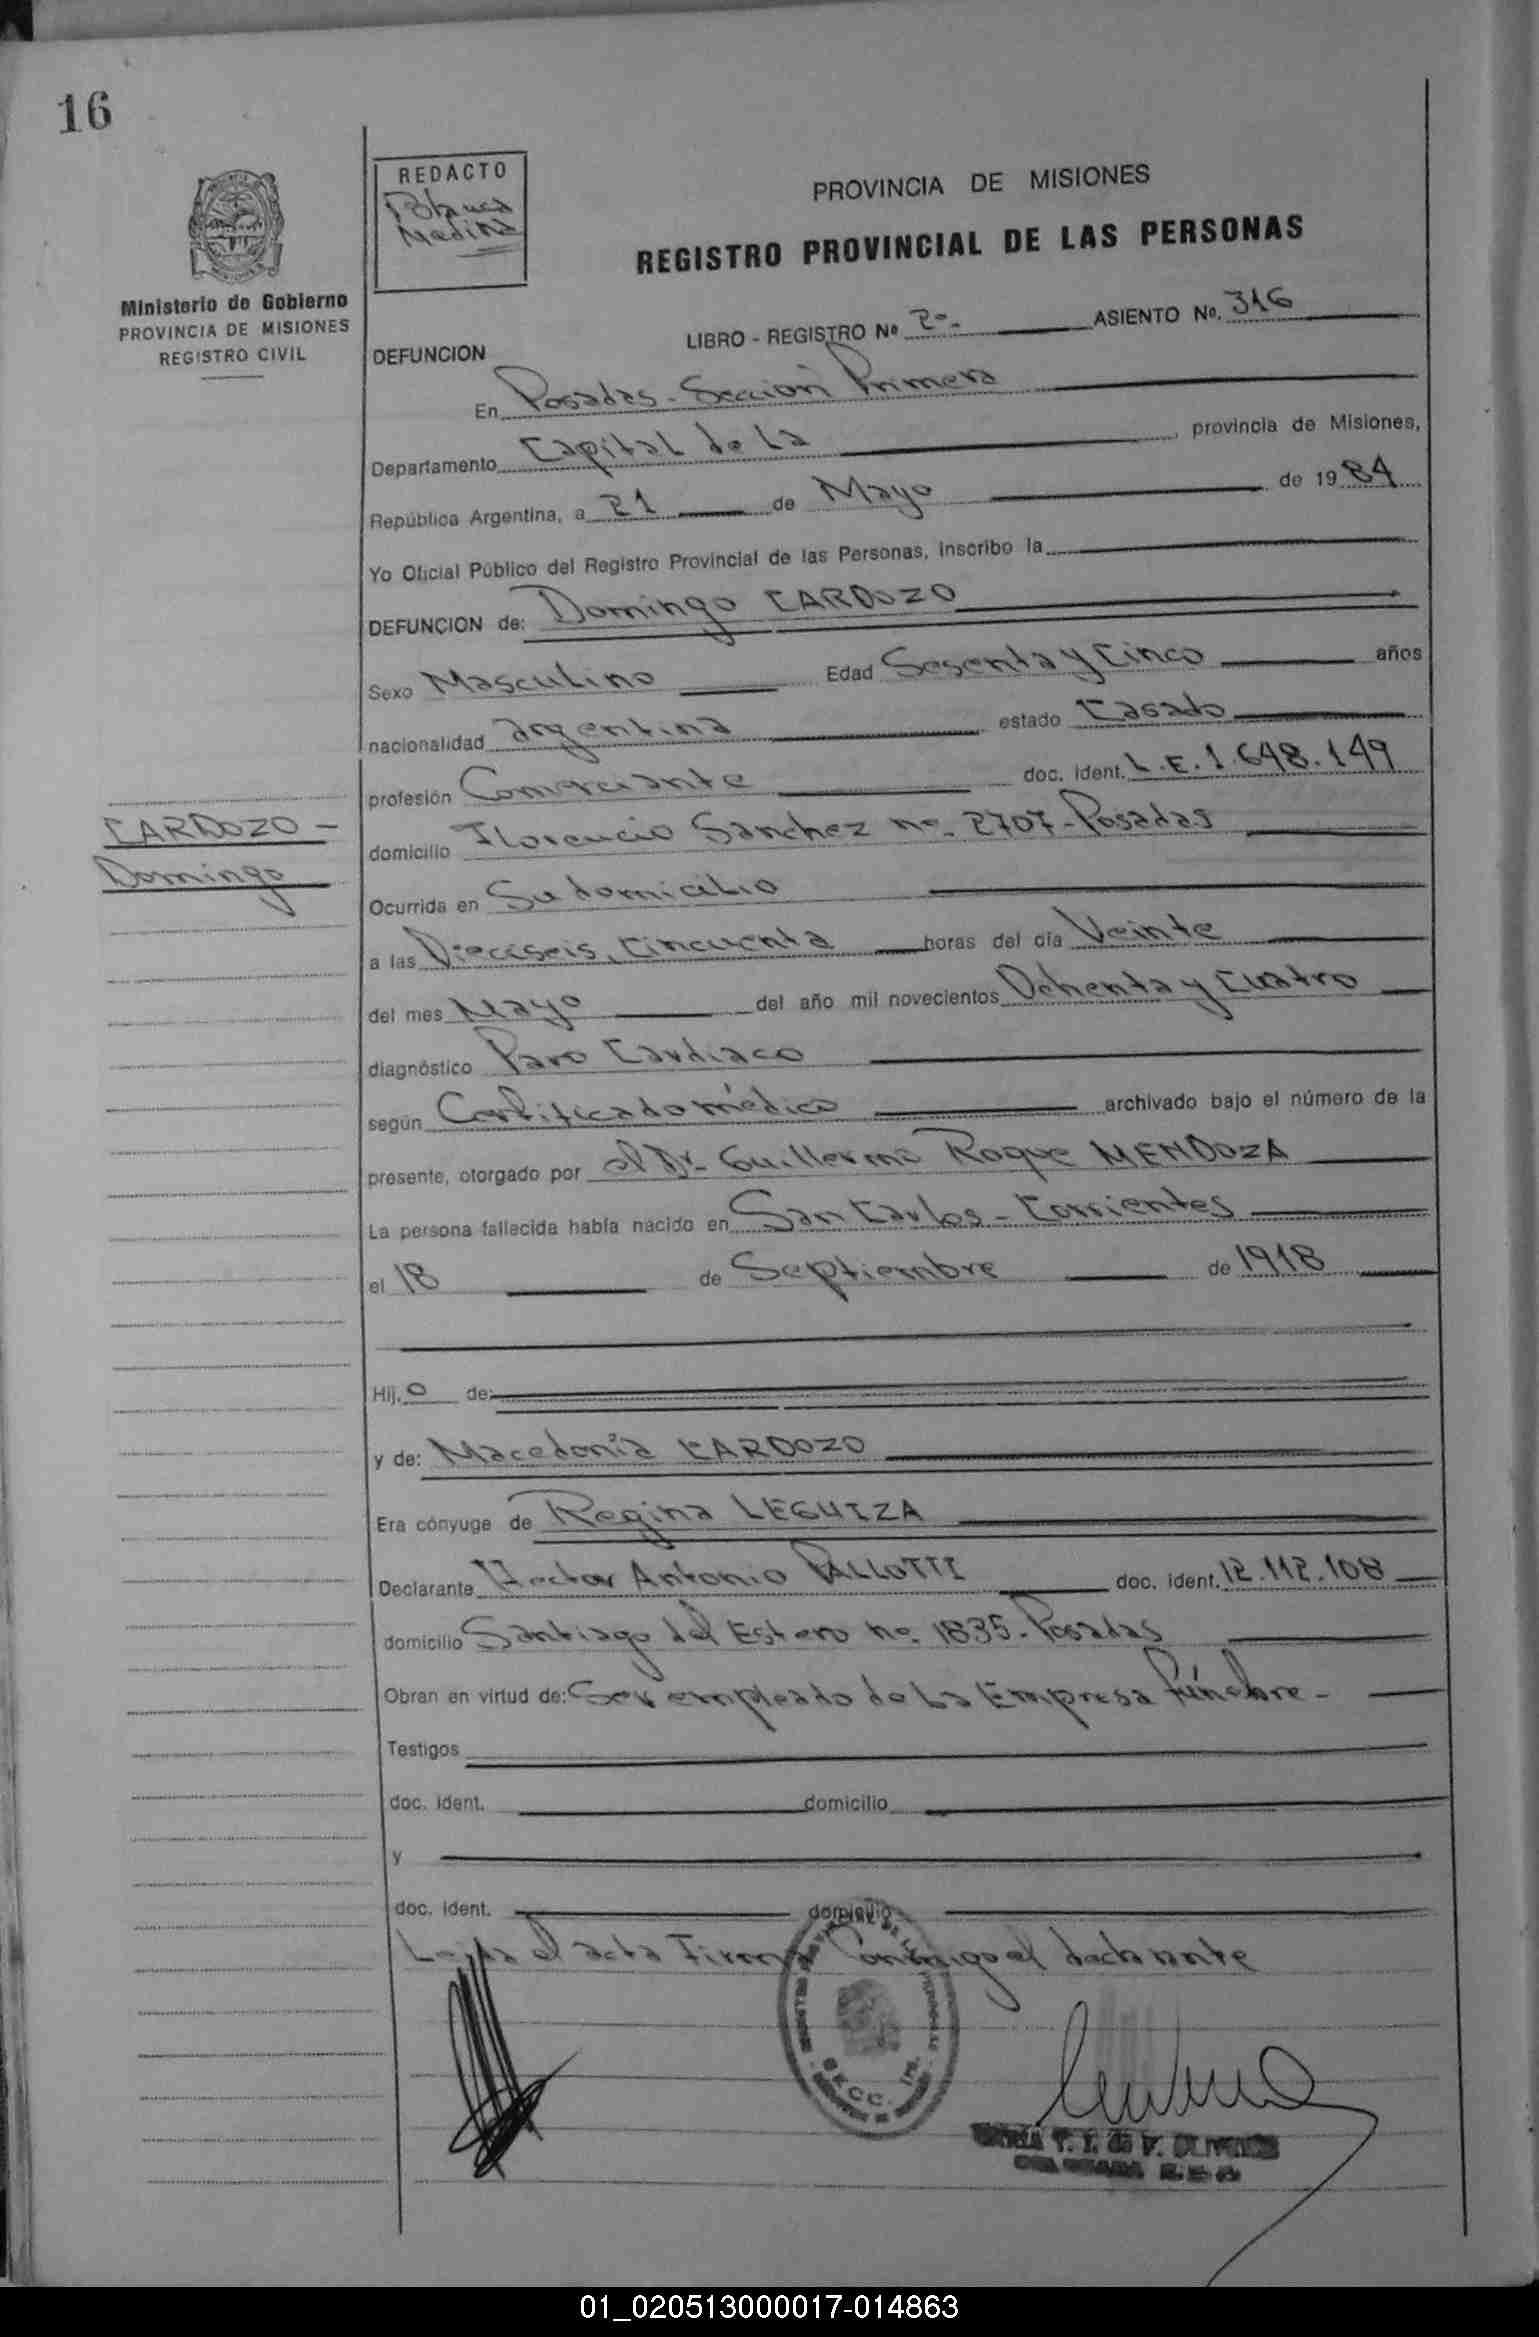 16
REDACTO
Blanca
Medina
PROVINCIA DE MISIONES
REGISTRO PROVINCIAL DE LAS PERSONAS
Ministerio de Gobierno
PROVINCIA DE MISIONES
REGISTRO CIVIL
LIBRO - REGISTRO Nº 2º- ASIENTO Nº. 316
DEFUNCION
En Posadas - Sección Primera
Departamento Capital de La provincia de Misiones,
República Argentina, a 21 de Mayo de 1984
Yo Oficial Público del Registro Provincial de las Personas, inscribo la
DEFUNCION de: Domingo CARDOZO
Sexo Masculino Edad Sesenta y Cinco años
nacionalidad argentina estado Casado
profesión Comerciante doc. ident. L.E. 1.648.149
CARDOZO -
Domingo
domicilio Florencio Sanchez nº. 2707 - Posadas
Ocurrida en Su domicilio
a las Dieciseis, Cincuenta horas del día Veinte
del mes Mayo del año mil novecientos Ochenta y Cuatro
diagnóstico Paro Cardiaco
según Certificado médico archivado bajo el número de la
presente, otorgado por el Dr. Guillermo Roque MENDOZA
La persona fallecida había nacido en San Carlos - Corrientes
el 18 de Septiembre de 1918
Hij. o de:
y de: Macedonia CARDOZO
Era cónyuge de Regina LEGUIZA
Declarante Hector Antonio PALLOTTI doc. ident. 12.112.108
domicilio Santiago del Estero nº. 1835 - Posadas
Obran en virtud de: Ser empleado de La Empresa fúnebre -
Testigos
doc. ident. domicilio
y
doc. ident. domicilio
Leída el acta Firma Conmigo el declarante
SECC. 1ra.
01_020513000017-014863